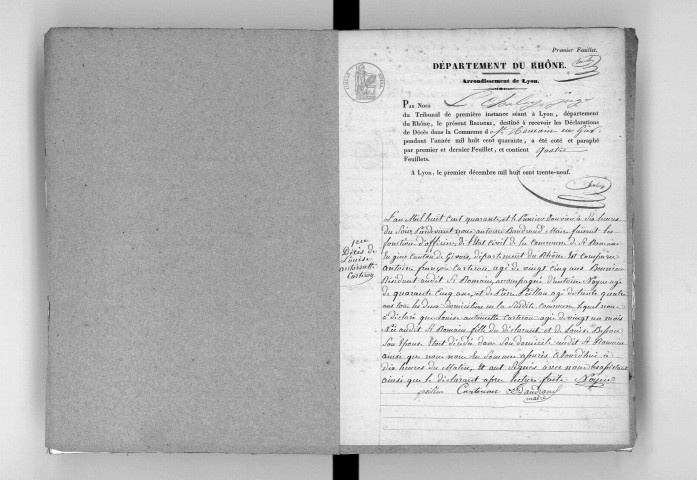 Premier Feuillet.
DÉPARTEMENT DU RHÔNE.
Arrondissement de Lyon.
PAR NOUS
du Tribunal de première instance séant à Lyon, département
du Rhône, le présent REGISTRE, destiné à recevoir les Déclarations
de Décès dans la Commune de St Romain en Gier
pendant l'année mil huit cent quarante, a été coté et paraphé
par premier et dernier Feuillet, et contient quatre
Feuillets.
A Lyon, le premier décembre mil huit cent trente-neuf.
1er
Décès de
Louise
antoinette
Carteron
L'an Mil huit cent quarante, et le Premier Janvier à Six heures
du Soir, Pardevant nous antoine Baudrand Maire faisant les
fonction d'officier de l'état Civil de la commune de St Romain
en gier Canton de Givors, département du Rhône est comparu
antoine françois Carteron agé de vingt cinq ans
Résidant audit St Romain, accompagné d'antoine Noyer agé
de quarante Cinq ans, et de Pierre agé de trente quatre
ans tous les deux domiciliés en la Susdite commune, lequel nous
à déclaré que Louise antoinette Carteron agée de vingt un mois
Née audit St Romain fille du déclarant et de Louise Besson
Son épouse Était décédée dans Son domicile audit St Romain
ainsi que nous nous en Sommes assurés aujourd'hui à
dix heures du Matin, et ont Signés avec nous
ainsi que le déclarant apres lecture faite Noyer
Carteron Baudrand
maire